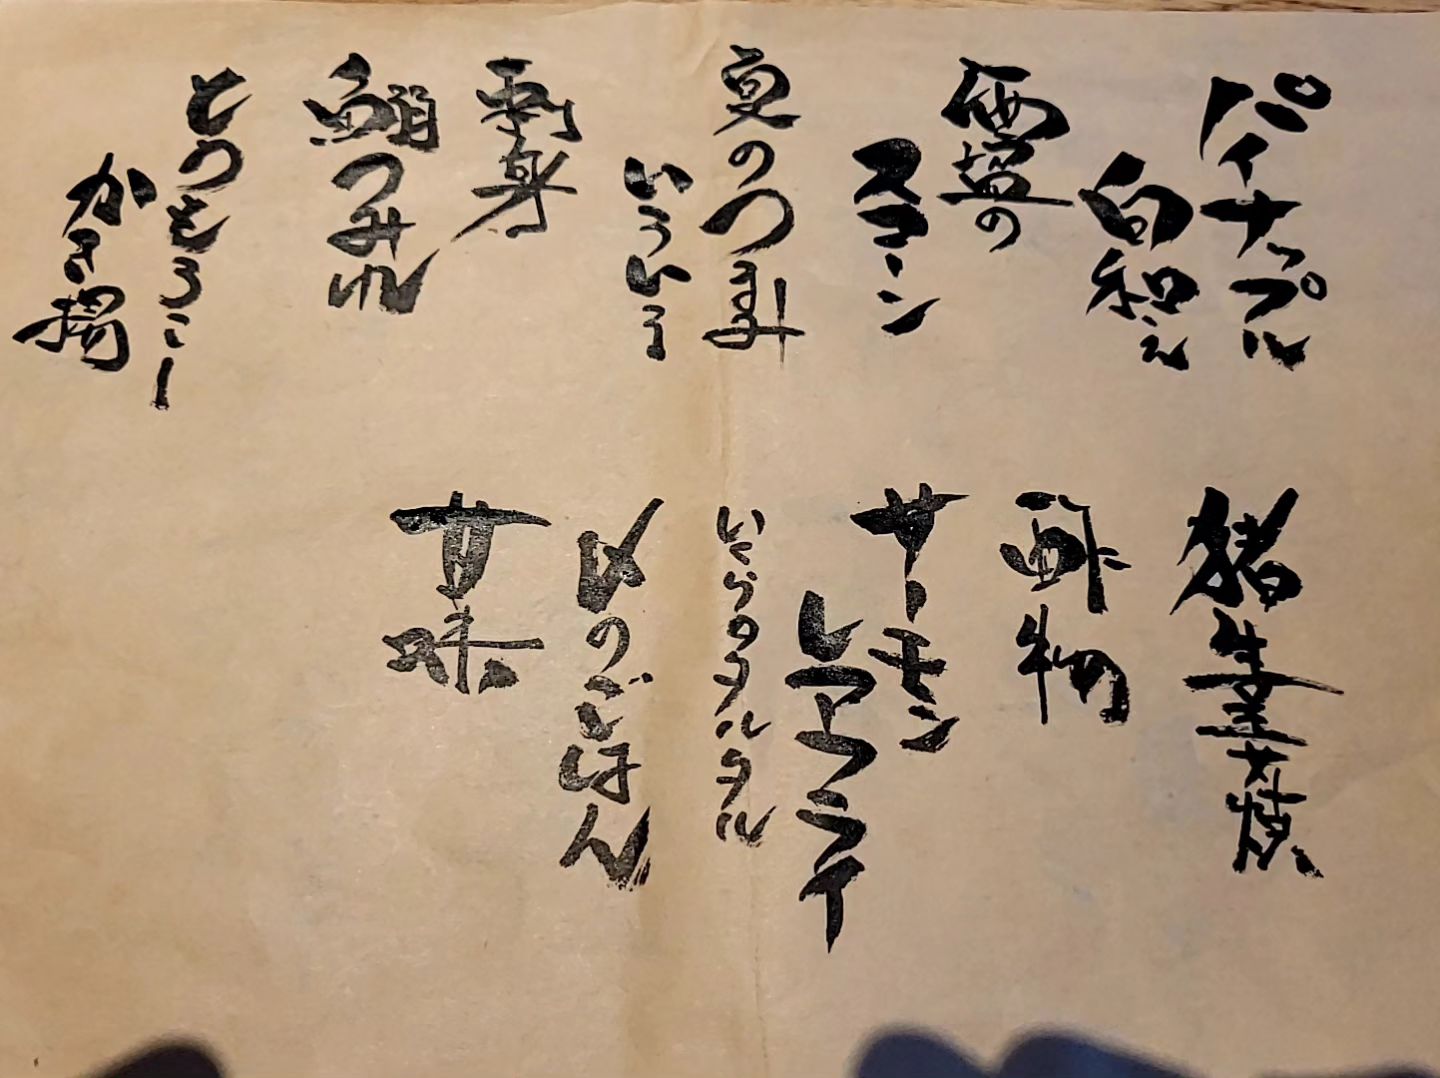 パイナップル
白和え
の
スコーン
夏のつまみ
いろいろ
刺身
鰯つみれ
とうもろこし
かき揚
猪生姜焼
酢物
サーモン
レアフライ
いくらのタルタル
〆のごはん
甘味